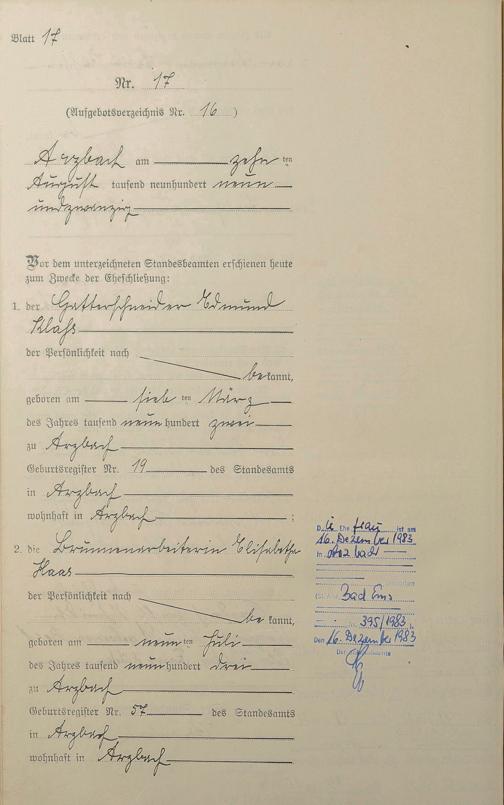 Blatt 17
Nr. 17
(Aufgebotsverzeichnis Nr. 16)
Arzbach am zehn ten
August tausend neunhundert neun
undzwanzig
Vor dem unterzeichneten Standesbeamten erschienen heute
zum Zwecke der Eheschließung:
1. der Edmund
Klaß
der Persönlichkeit nach
bekannt,
geboren am sieb ten März
des Jahres tausend neunhundert zwei
zu Arzbach
Geburtsregister Nr. 19 des Standesamts
in Arzbach
wohnhaft in Arzbach ;
2. die Brunnenarbeiterin Elisabetha
Haas
der Persönlichkeit nach
bekannt,
geboren am neun ten Juli
des Jahres tausend neunhundert drei
zu Arzbach
Geburtsregister Nr. 57 des Standesamts
in Arzbach
wohnhaft in Arzbach
Die Ehefrau ist am
16. Dezember 1983
in Arzbach
Bad Ems
Nr. 395/1983
Den 16. Dezember 1983